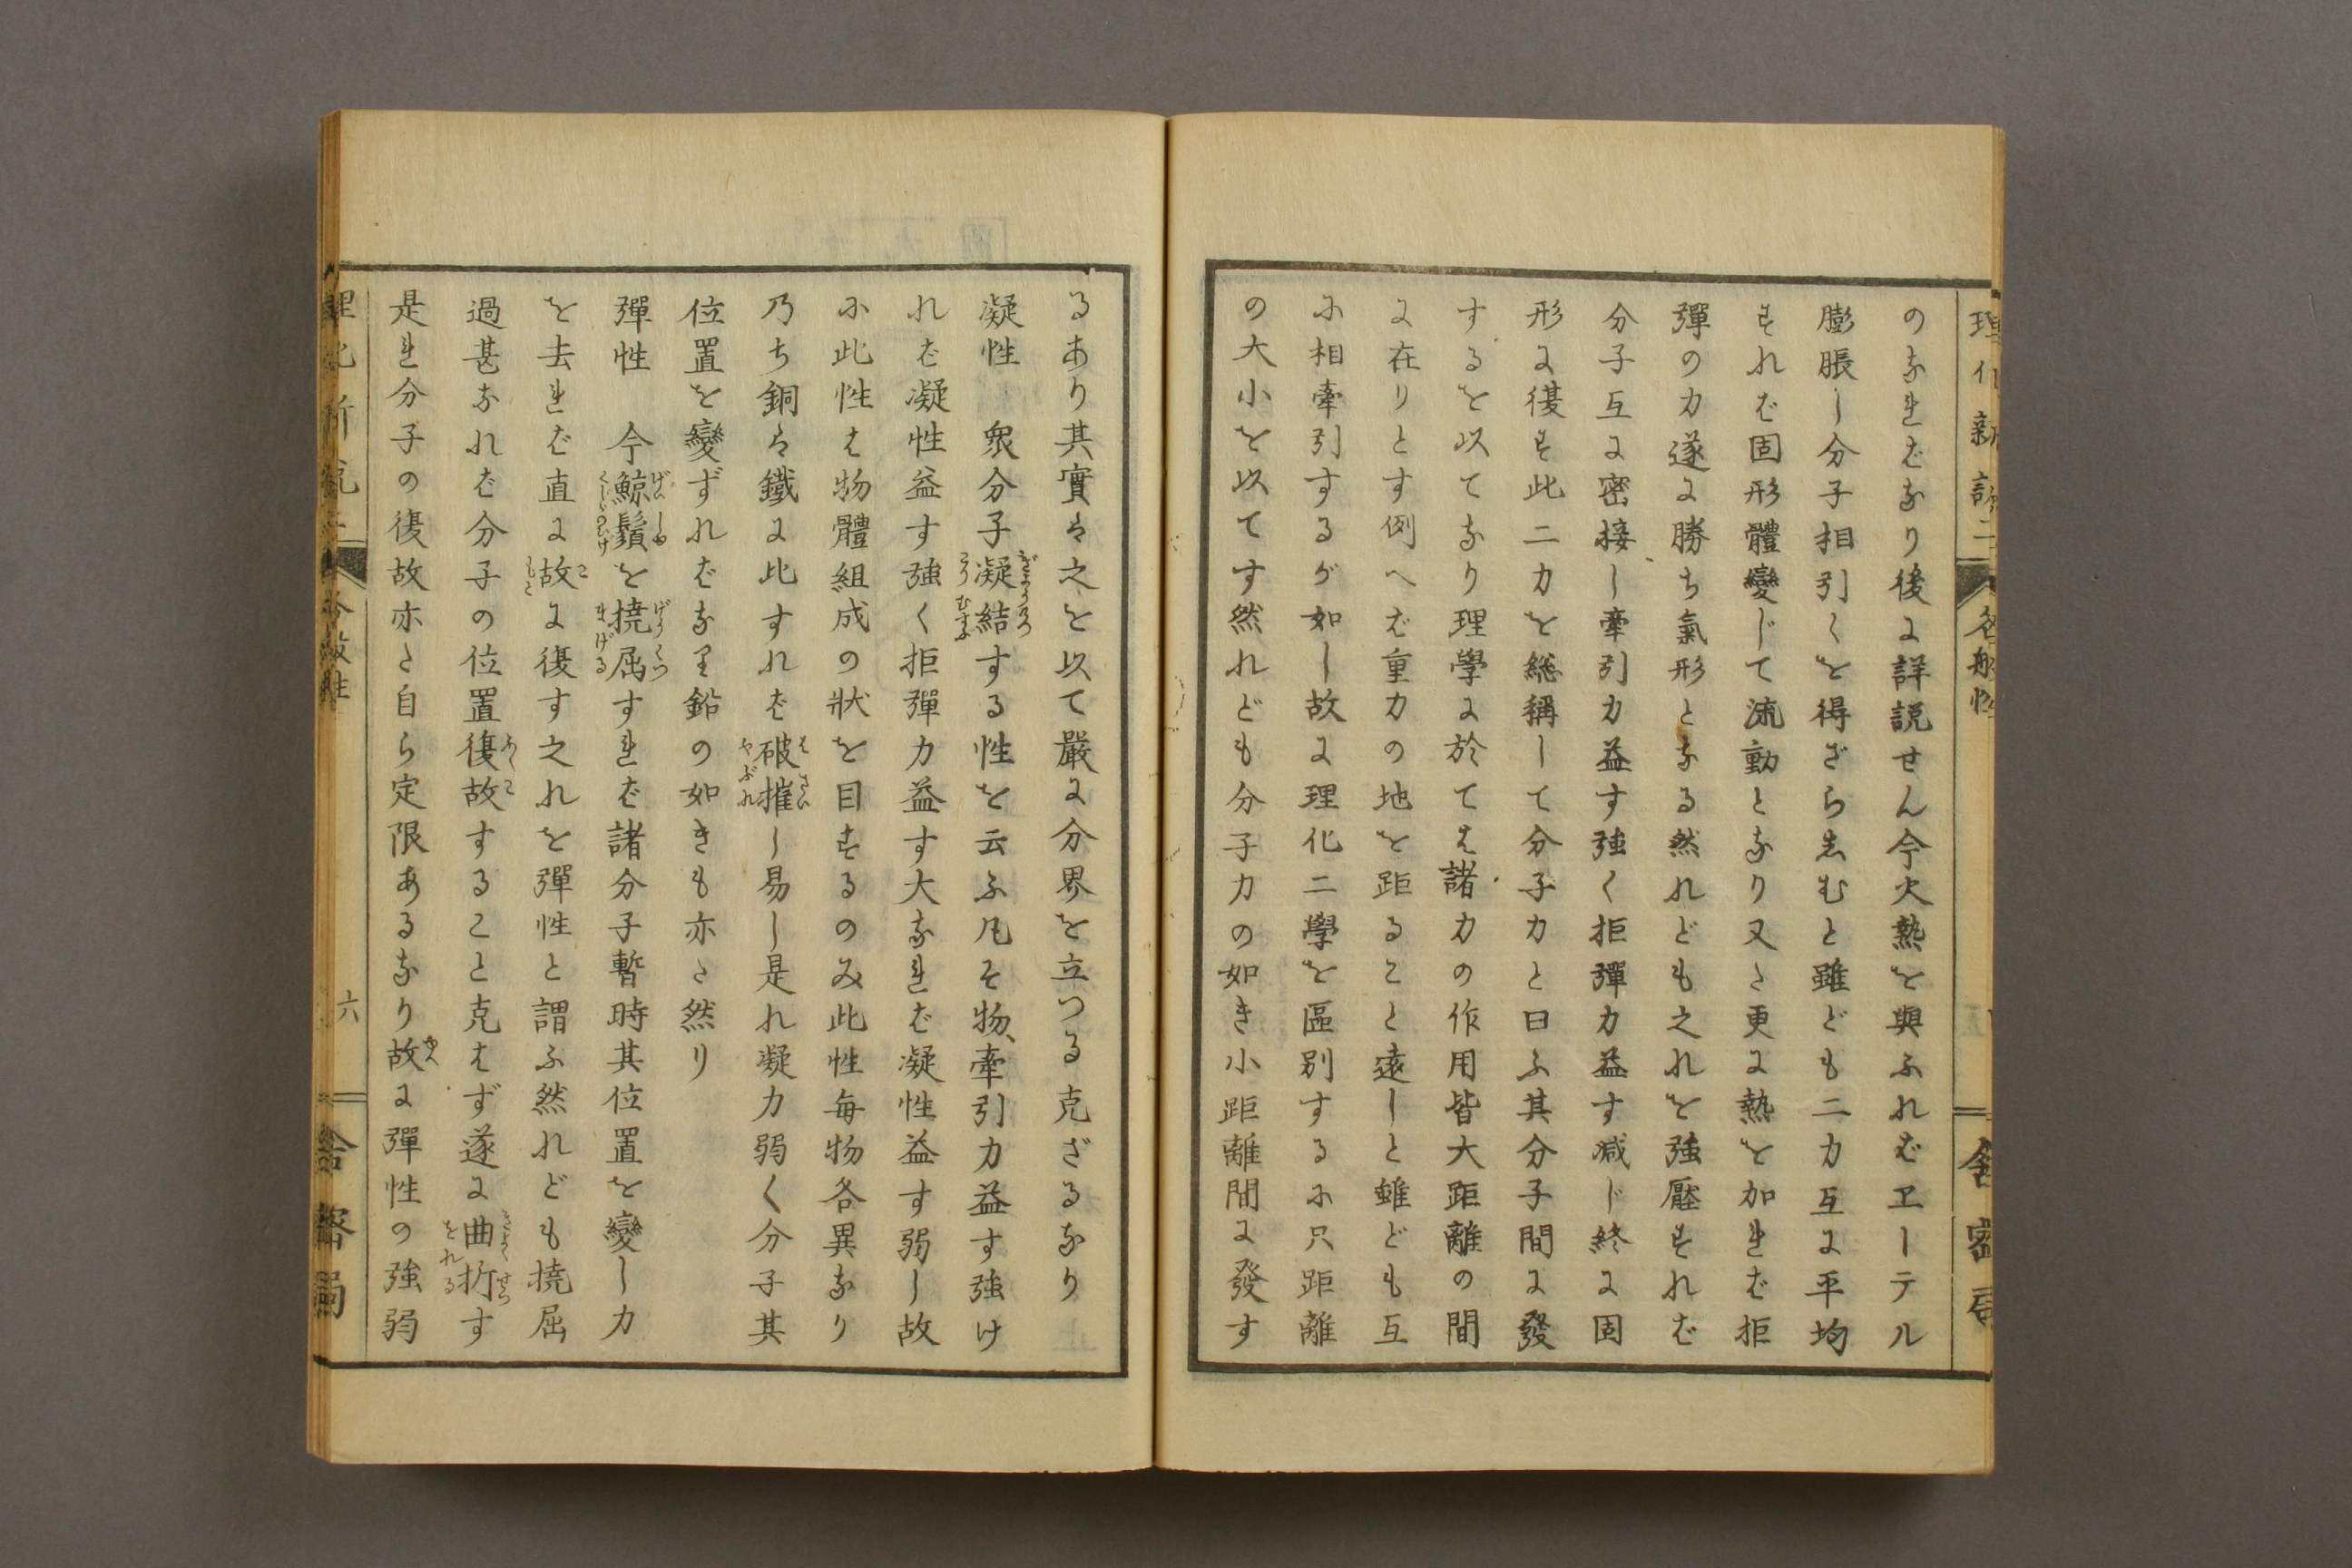 のなればなり後に詳説せん今火熱を與ふればヱーテル
膨脹し分子相引くを得ざらしむと雖ども二力互に平均
すれば固形體變じて流動となり又た更に熱を加れば拒
彈の力遂に勝ち氣形となる然れども之れを強壓すれば
分子互に密接し牽引力益す強く拒彈力益す減じ終に固
形に復す此二力を総稱して分子力と曰ふ其分子間に發
するを以てなり理學に於ては諸力の作用皆大距離の間
に在りとす例へば重力の地を距ること遠しと雖ども互
に相牽引するが如し故に理化二學を區別するに只距離
の大小を以てす然れども分子力の如き小距離間に發す
るあり其實は之を以て嚴に分界を立つる克ざるなり
凝性　衆分子凝結する性を云ふ凡そ物、牽引力益す強け
れば凝性益す強く拒彈力益す大なれば凝性益す弱し故
に此性は物體組成の狀を目するのみ此性毎物各異なり
乃ち銅は鐵に此すれば破摧し易し是れ凝力弱く分子其
位置を變ずればなり鉛の如きも亦た然り
彈性　今鯨鬚を撓屈すれば諸分子暫時其位置を變し力
を去れば直に故に復す之れを彈性と謂ふ然れども撓屈
過甚なれば分子の位置復故すること克はず遂に曲折す
是れ分子の復故亦た自ら定限あるなり故に彈性の強弱
六